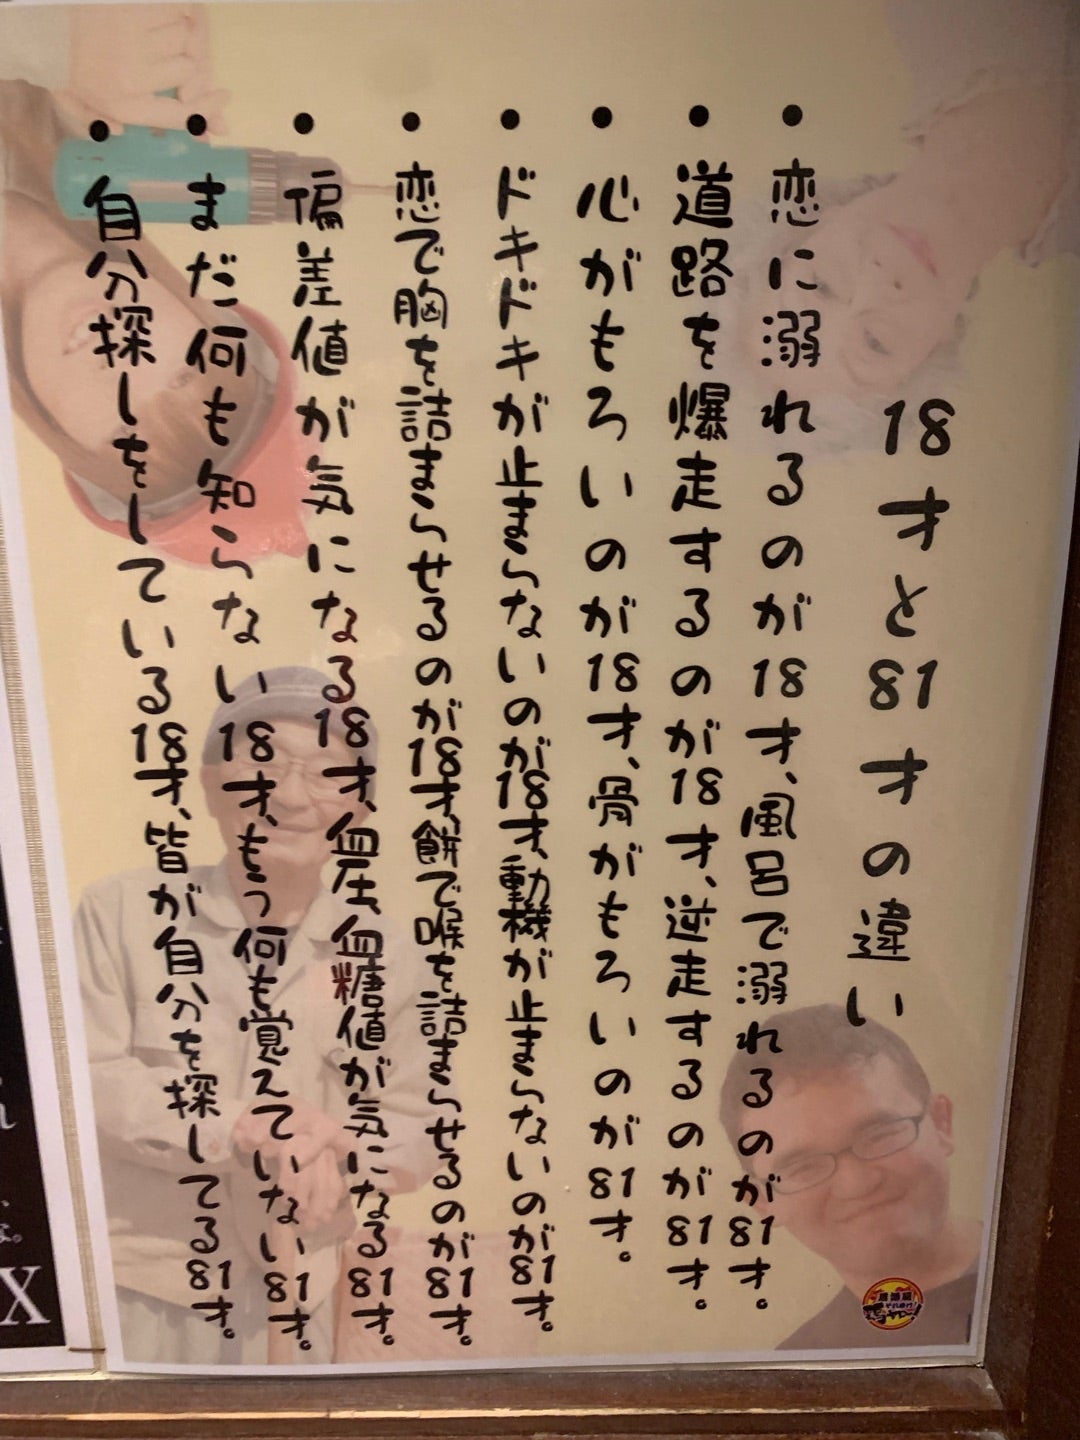 18才と81才の違い
• 恋に溺れるのが18才、風呂で溺れるのが81才。
• 道路を爆走するのが18才、逆走するのが81才。
• 心がもろいのが18才、骨がもろいのが81才。
• ドキドキが止まらないのが18才、動機が止まらないのが81才。
• 恋で胸を詰まらせるのが18才、餅で喉を詰まらせるのが81才。
• 偏差値が気になる18才、血圧、血糖値が気になる81才。
• まだ何も知らない18才、もう何も覚えていない81才。
• 自分探しをしている18才、皆が自分を探してる81才。
X